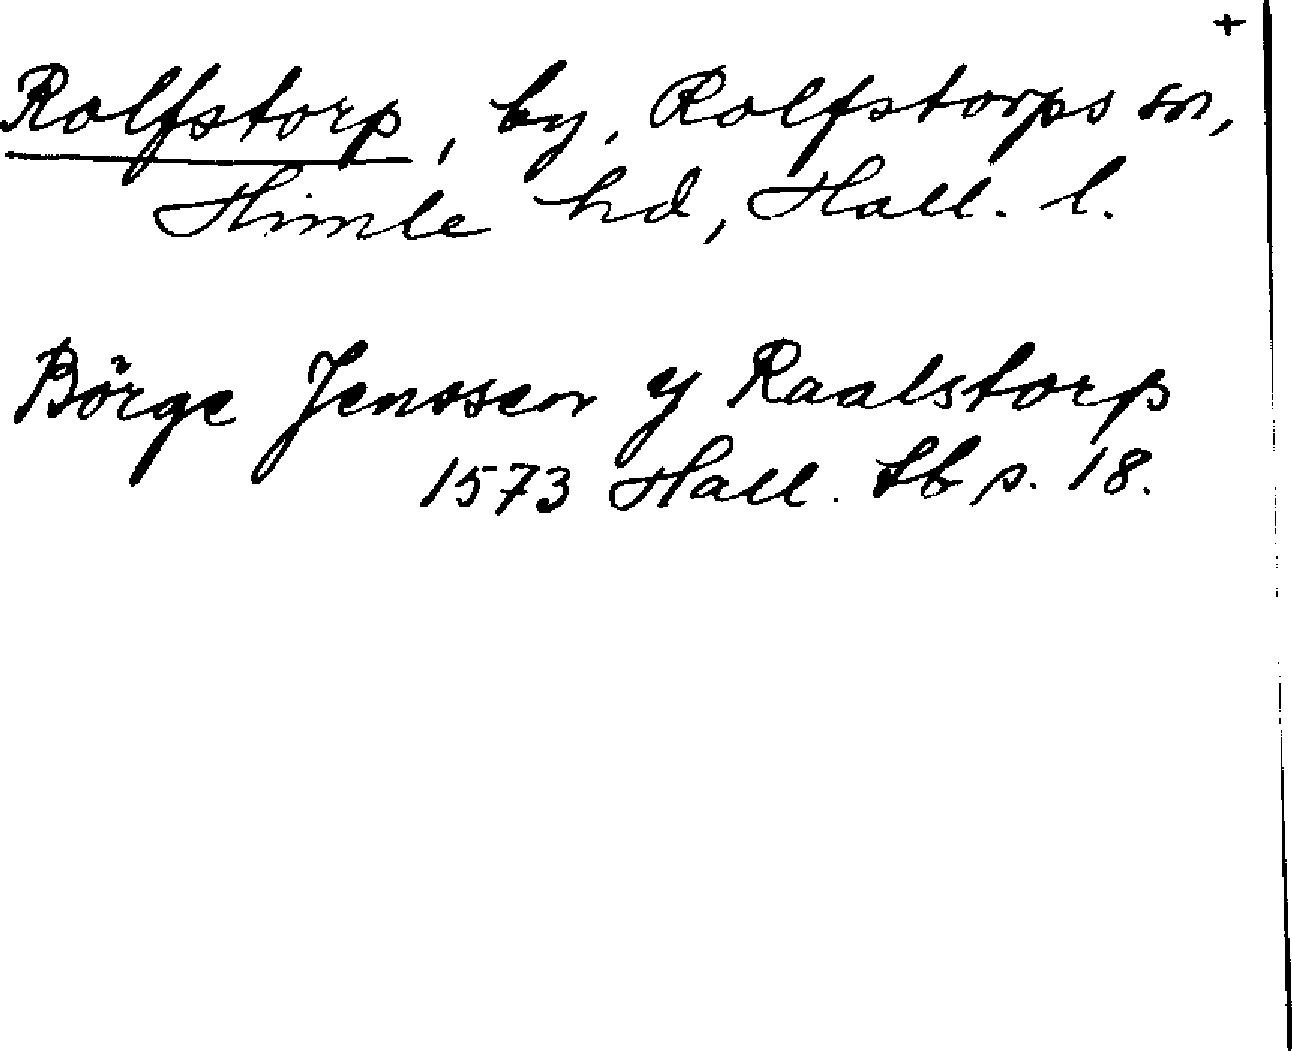 +
Rolfstorp, by, Rolfstorps sn,
Himle hd, Hall. l.
Börge Jenssen y Raalstorp
1573 Hall. Lb s. 18.